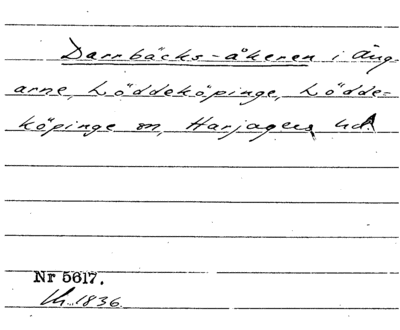 Darrbäcks-åkeren i Äng-
arne, Löddeköpinge, Lödde=
köpinge sn, Harjagers hd.
Nr 5617.
1836.